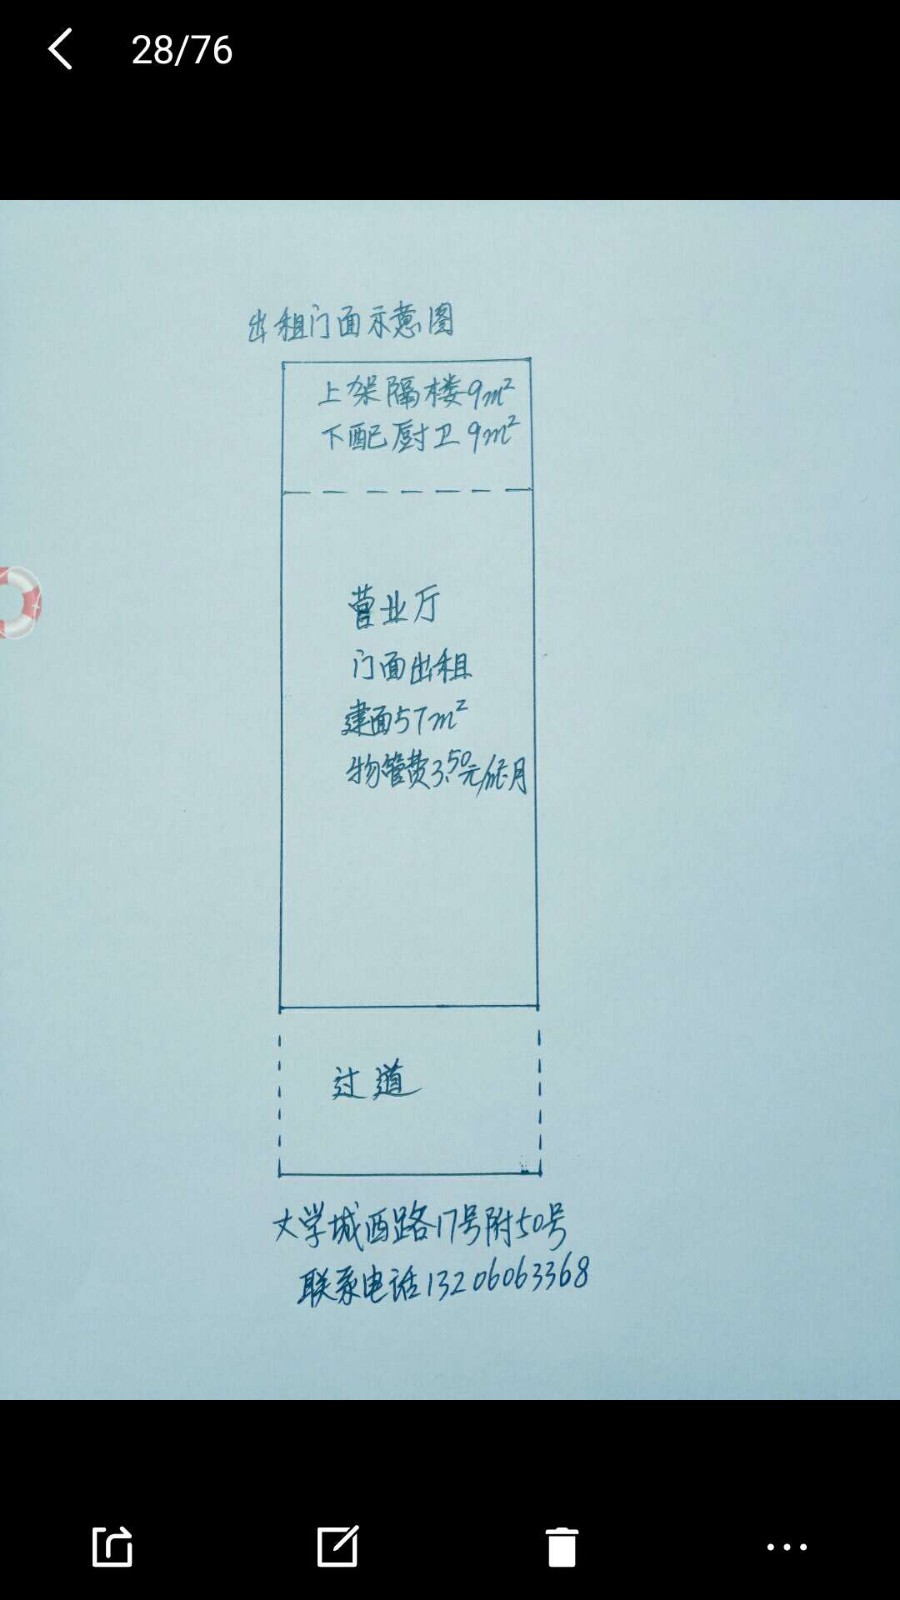 28/76
出租门面示意图
上架隔楼9m²
下配厨卫9m²
营业厅
门面出租
建面57m²
物管费3.50元/㎡月
过道
大学城西路17号附50号
联系电话13206063368